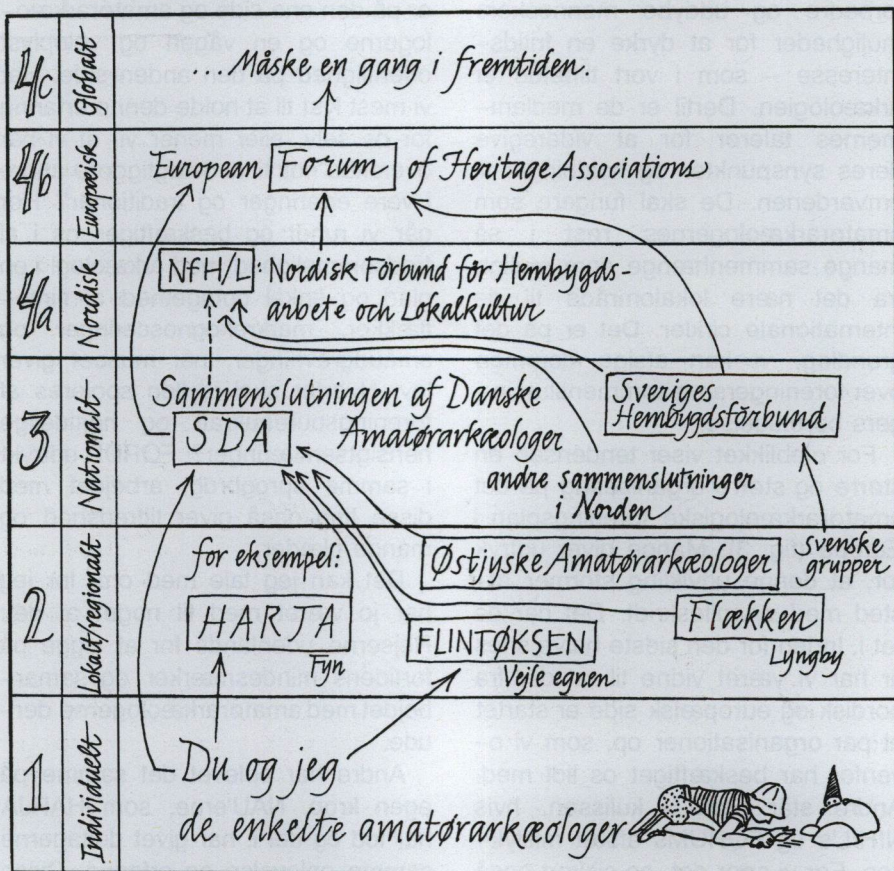 4c Globalt
....Måske en gang i fremtiden.
4b Europæisk
European Forum of Heritage Associations
4a Nordisk
NFHL: Nordisk Förbund för Hembygds-
arbete och Lokalkultur
3 Nationalt
Sammenslutningen af Danske
SDA Amatørarkæologer
Sveriges
Hembygdsförbund
andre sammenslutninger
i Norden
2 Lokalt/regionalt
for eksempel:
Østjyske Amatørarkæologer
Svenske
grupper
HARJA
Fyn
FLINTØKSEN
Vejle egnen
Flækken
Lyngby
1 Individuelt
Du og jeg
de enkelte amatørarkæologer